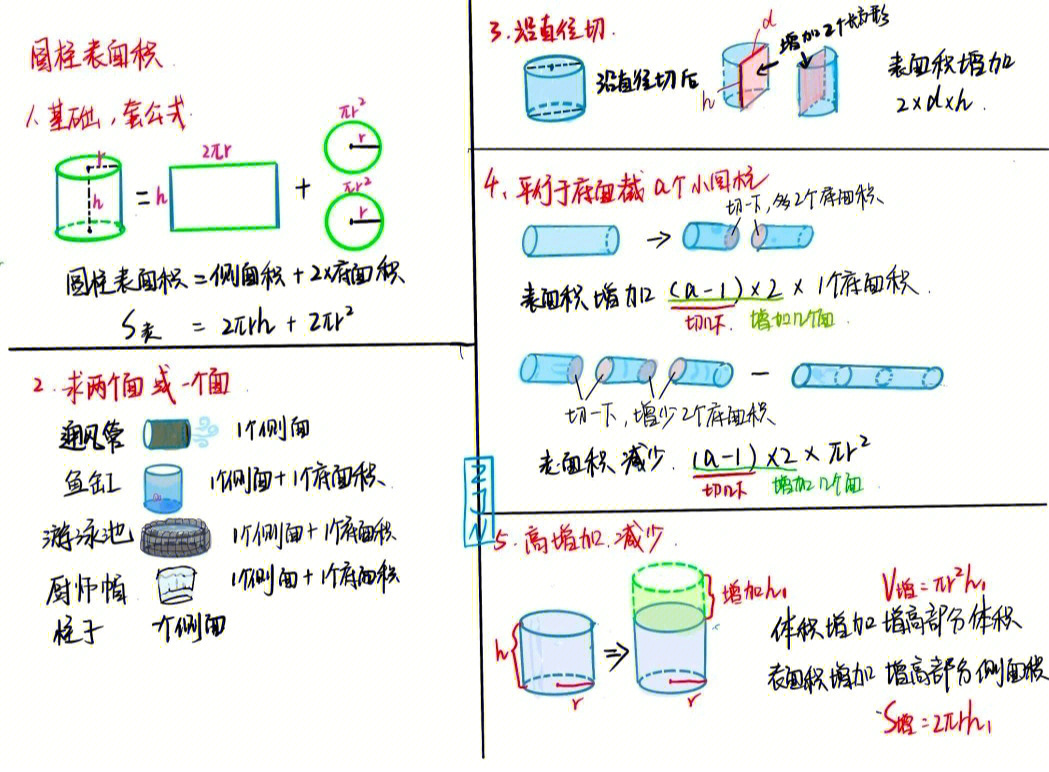 圆柱表面积
1、基础，套公式
r
h
=
h
2πr
+
πr²
r
πr²
r
圆柱表面积=侧面积+2×底面积
S表 = 2πrh + 2πr²
2.求两个面或一个面
通风管 1个侧面
鱼缸 1个侧面+1个底面积
游泳池 1个侧面+1个底面积
厨师帽 1个侧面+1个底面积
柱子 一个侧面
ZJN
3.沿直径切.
沿直径切后
d
h
增加2个长方形
表面积增加
2×d×h.
4、平行于底面截a个小圆柱
切一下，多2个底面积、
表面积增加 (a-1)×2×1个底面积.
切几下. 增加几个面.
切一下，增少2个底面积
表面积减少. (a-1)×2×πr²
切几下 增加几个面.
5.高增加.减少.
h
r
r
增加h₁
V增=πr²h₁
体积增加 增高部分体积
表面积增加 增高部分侧面积
S增=2πrh₁